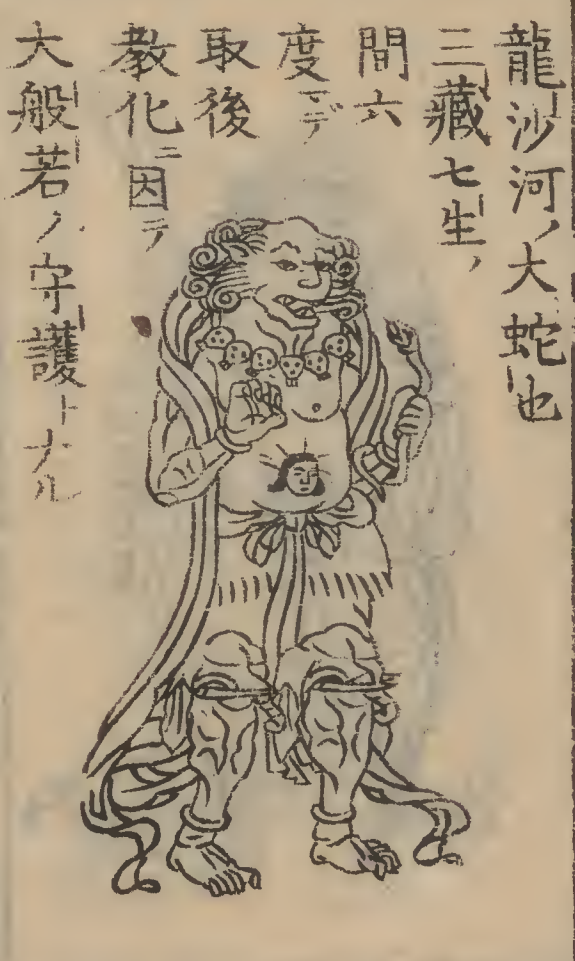 龍沙河ノ大蛇也
三藏七生ノ
間六
度マデ
取後
教化ニ因テ
大般若ノ守護トナル